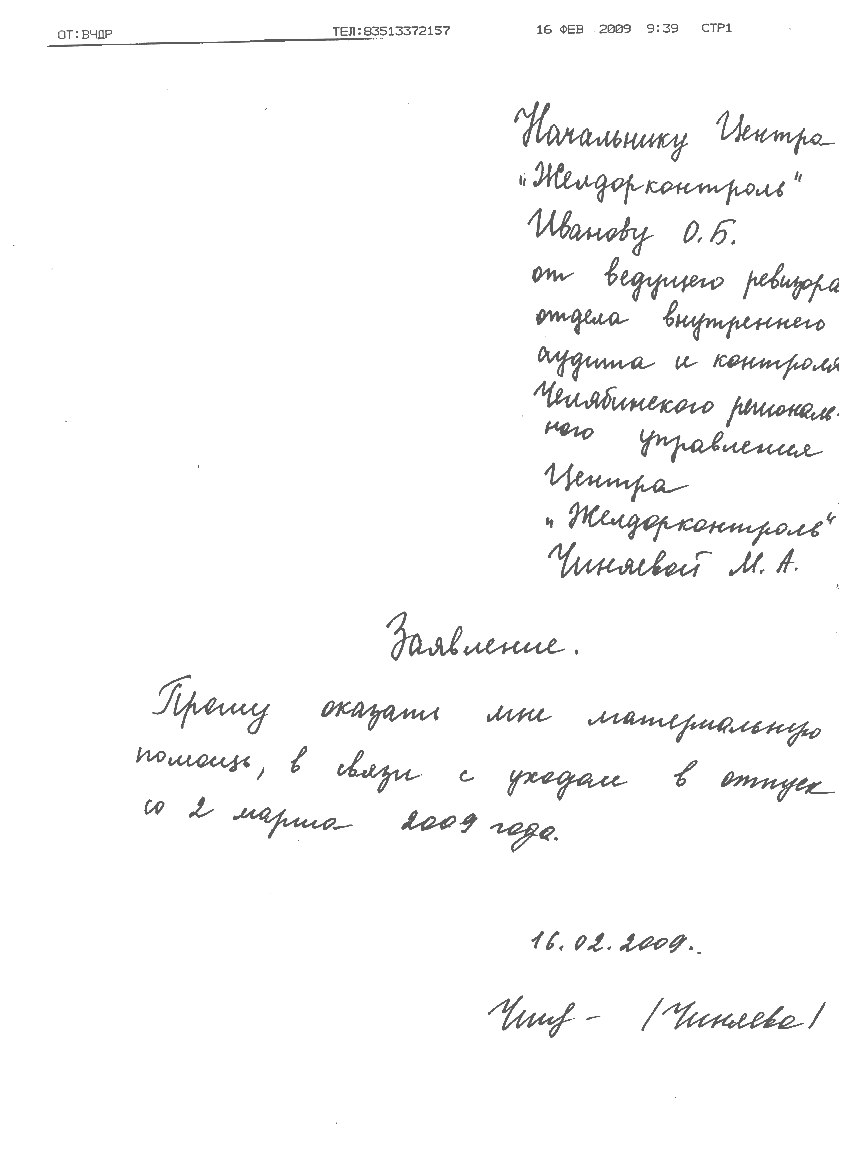 ОТ:ВЧДР ТЕЛ:83513372157 16 ФЕВ 2009 9:39 СТР1
Начальнику Центра
"Желдорконтроль"
Иванову О.Б.
от ведущего ревизора
отдела внутреннего
аудита и контроля
Челябинского региональ-
ного управления
Центра
"Желдорконтроль"
Чиняевой М.А.
Заявление.
Прошу оказать мне материальную
помощь, в связи с уходом в отпуск
со 2 марта 2009 года.
16.02.2009.
/Чиняева/